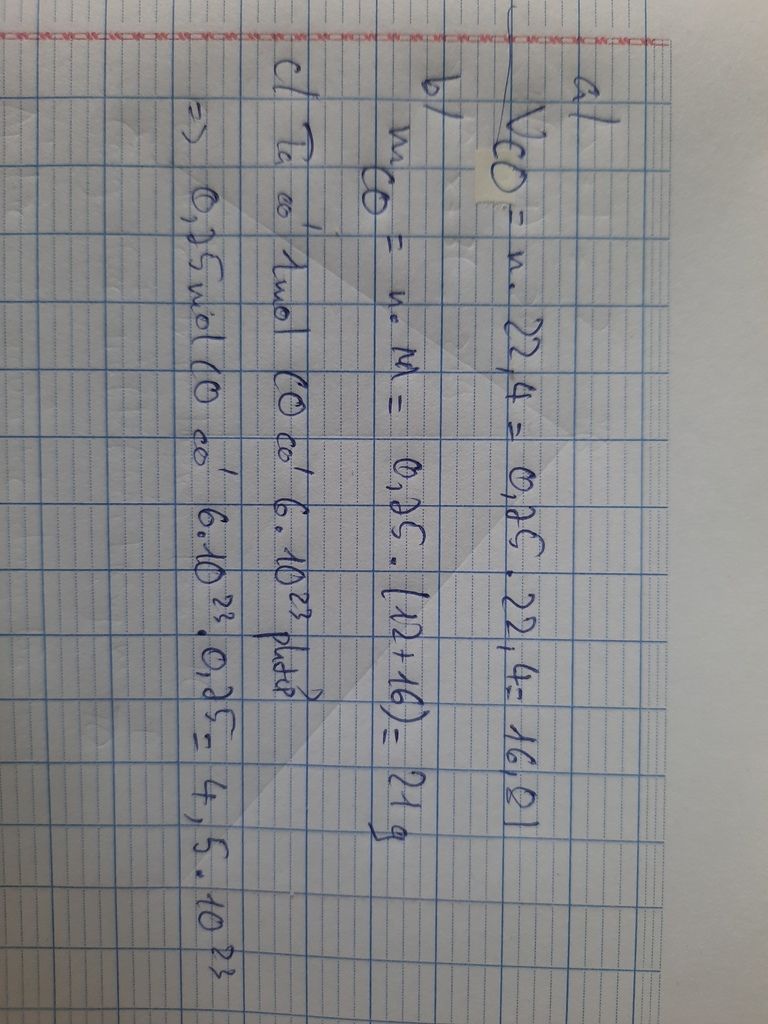 a/
V_CO = n. 22,4 = 0,75 . 22,4 = 16,8 l
b/
m_CO = n. M = 0,75 . (12+16) = 21 g
c/ Ta có 1 mol CO có 6.10²³
=> 0,75 mol CO có 6.10²³. 0,75 = 4,5.10²³